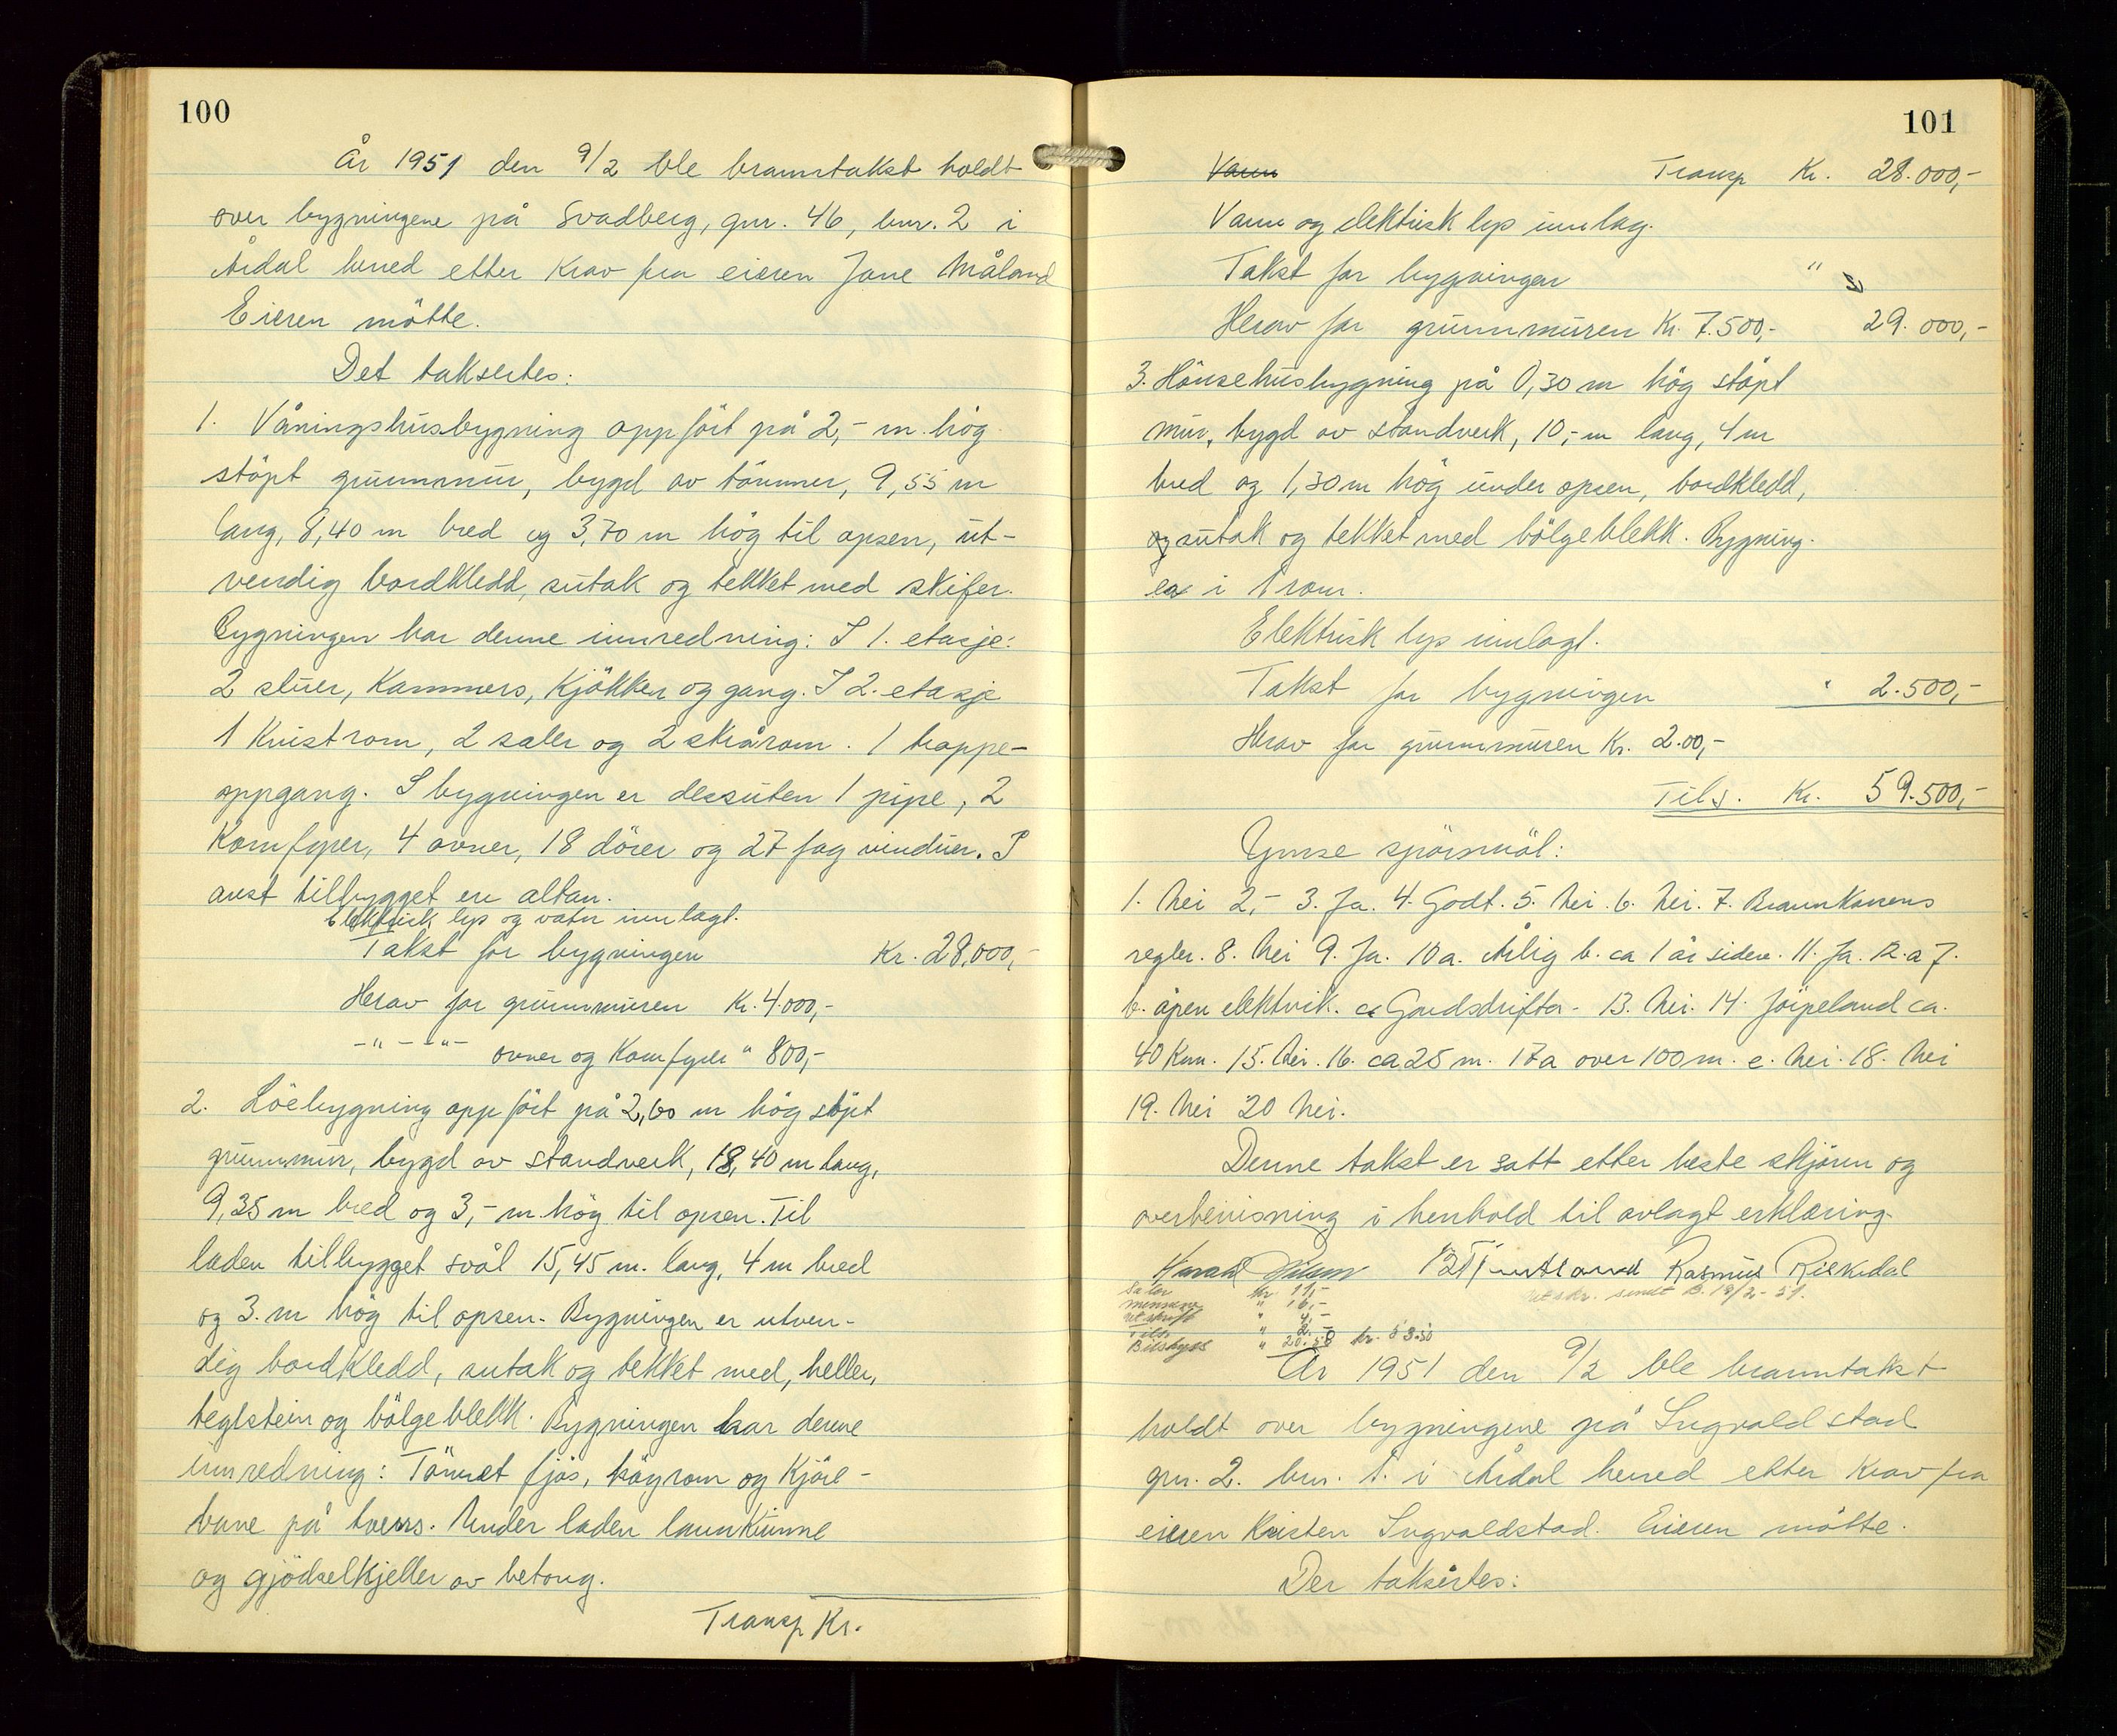 100
År 1951 den 9/2 ble branntakst holdt
over bygningene på Svadberg, gnr. 46, bnr. 2 i
Årdal herred etter krav fra eieren Jane Måland
Eieren mötte.
Det taksertes:
1. Våningshusbygning oppfört på 2,- m. hög
stöpt grunnmur, bygd av tömmer, 9,55 m
lang, 8,40 m bred og 3,70 m hög til opsen, ut-
vendig bordkledd, sutak og tekket med skifer.
Bygningen har denne innredning: I 1. etasje:
2 stuer, kammers, kjökken og gang. I 2. etasje
1 kvistrom, 2 saler og 2 skrårom. 1 trappe-
oppgang. I bygningen er dessuten 1 pipe, 2
komfyrer, 4 ovner, 18 dörer og 27 fag vinduer. I
aust tilbygget en altan.
Elektrisk lys og vatn innlagt.
Takst for bygningen Kr. 28.000,-
Herav for grunnmuren Kr. 4.000,-
-"- -"- ovner og komfyrer " 800,-
2. Löebygning oppfört på 2,60 m hög stöpt
grunnmur, bygd av standverk, 18,40 m lang,
9,35 m bred og 3,- m. hög til opsen. Til
laden tilbygget svål 15,45 m. lang, 4 m bred
og 3. m hög til opsen. Bygningen er utven-
dig bordkledd, sutak og tekket med, heller,
teglstein og bölgeblekk. Bygningen har denne
innredning: Tömret fjös, högrom og kjöre-
bane på tverrs. Under laden lannkumme
og gjödselkjeller av betong.
Transp Kr.
101
Vann Transp Kr. 28.000,-
Vann og elektrisk lys innlag.
Takst for bygningen "
Herav for grunnmuren Kr. 7.500,- 29.000,-
3. Hönsehusbygning på 0,30 m hög stöpt
mur, bygd av standverk, 10,- m lang, 4 m
bred og 1,30 m hög under opsen, bordkledd,
og sutak og tekket med bölgeblekk. Bygning-
en i 1 rom.
Elektrisk lys innlagt.
Takst for bygningen " 2.500,-
Herav for grunnmuren Kr. 2.00,-
Tils. Kr. 59.500,-
Ymse spörsmål:
1. Nei 2,- 3. Ja. 4. Godt. 5. Nei. 6. Nei. 7. Brannkassens
regler. 8. Nei 9. Ja. 10 a. Årlig b. ca 1 år siden. 11. Ja. 12. a 7.
b. åpen elektrik. c. Gardsdrifta - 13. Nei. 14. Jörpeland ca.
40 km. 15. Nei. 16. ca 25 m. 17 a over 100 m. e. Nei. 18. Nei
19. Nei 20 Nei.
Denne takst er satt etter beste skjönn og
overbevisning i henhold til avlagt erklæring.
Rasmus Riskedal
utskr. sendt B. 18/2-51.
Kr 11,-
" 16,-
utskrift " 4,-
Tils. " 2.-
Bilskyss " 20.50 kr. 53.50
År 1951 den 9/2 ble branntakst
holdt over bygningene på Ingvaldstad
gnr. 2. bnr. 1. i Årdal herred etter krav fra
eieren Kristen Ingvaldstad. Eieren mötte.
Der taksertes: